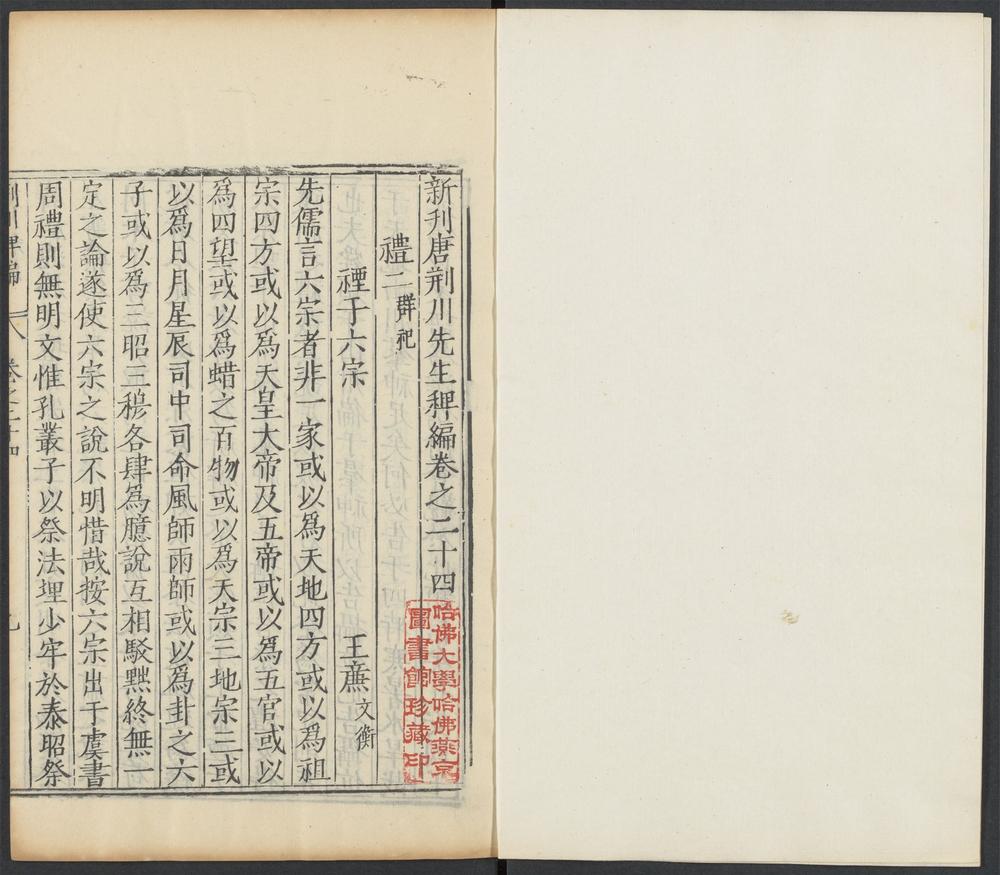 新刋唐荆川先生稗編卷之二十四
禮二 群祀
禋于六宗 王廉 文衡
先儒言六宗者非一家或以爲天地四方或以爲祖
宗四方或以爲天皇大帝及五帝或以爲五官或以
爲四望或以爲蜡之百物或以爲天宗三地宗三或
以爲日月星辰司中司命風師雨師或以爲卦之六
子或以爲三昭三穆各肆爲臆說互相駁黜終無一
定之論遂使六宗之說不明惜哉按六宗出于虞書
周禮則無明文惟孔叢子以祭法埋少牢於泰昭祭
荆川稗編 卷之二十四
哈佛大學哈佛燕京
圖書館珍藏印